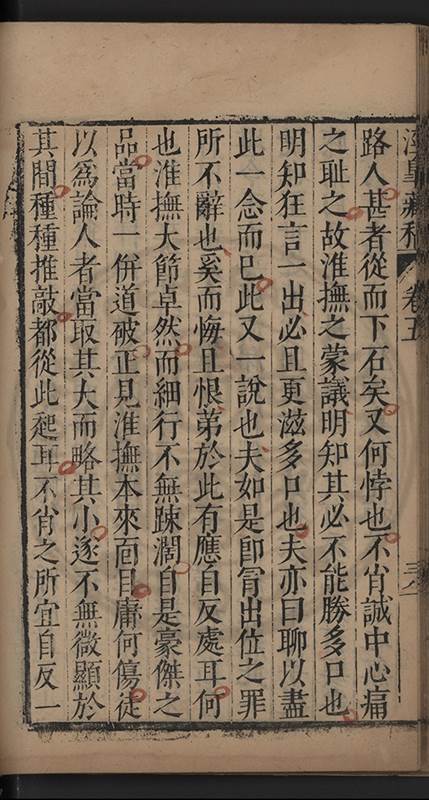 涇皋藏稿 卷五
路人甚者從而下石矣又何悖也不肖誠中心痛
之耻之故淮撫之蒙議明知其必不能勝多口也
明知狂言一出必且更滋多口也夫亦曰聊以盡
此一念而已此又一說也夫如是卽冐出位之罪
所不辭也奚而悔且恨第於此有應自反處耳何
也淮撫大節卓然而細行不無踈濶自是豪傑之
品當時一併道破正見淮撫本來面目庸何傷徒
以爲論人者當取其大而略其小遂不無微顯於
其間種種推敲都從此起耳不肖之所宜自反一